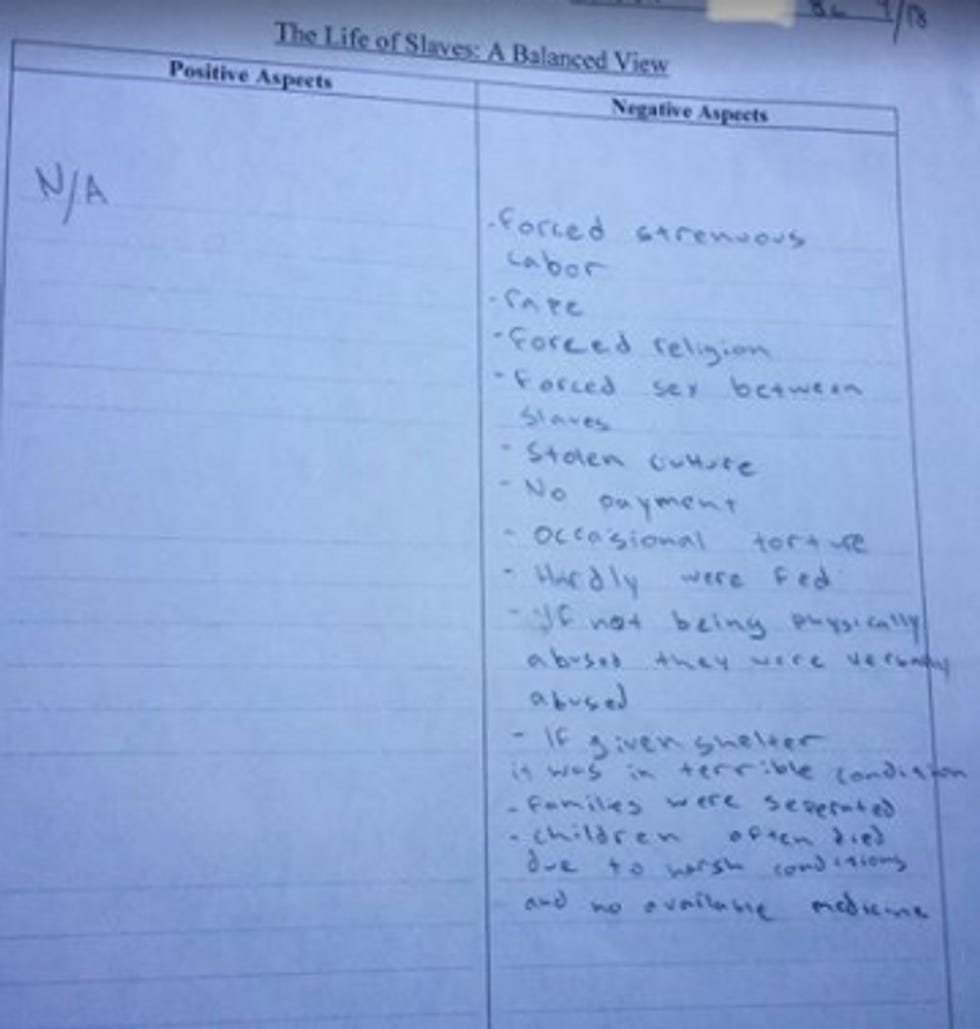 8L 9/18
The Life of Slaves: A Balanced View
Positive Aspects
Negative Aspects
N/A
-Forced strenuous
Labor
-rape
-Forced religion
-Forced sex between
slaves
-Stolen culture
-No payment
-occasional torture
-Hardly were fed
-If not being physically
abused they were verbally
abused
-If given shelter
it was in terrible condition
-Families were seperated
-children often died
due to harsh conditions
and no available medicine